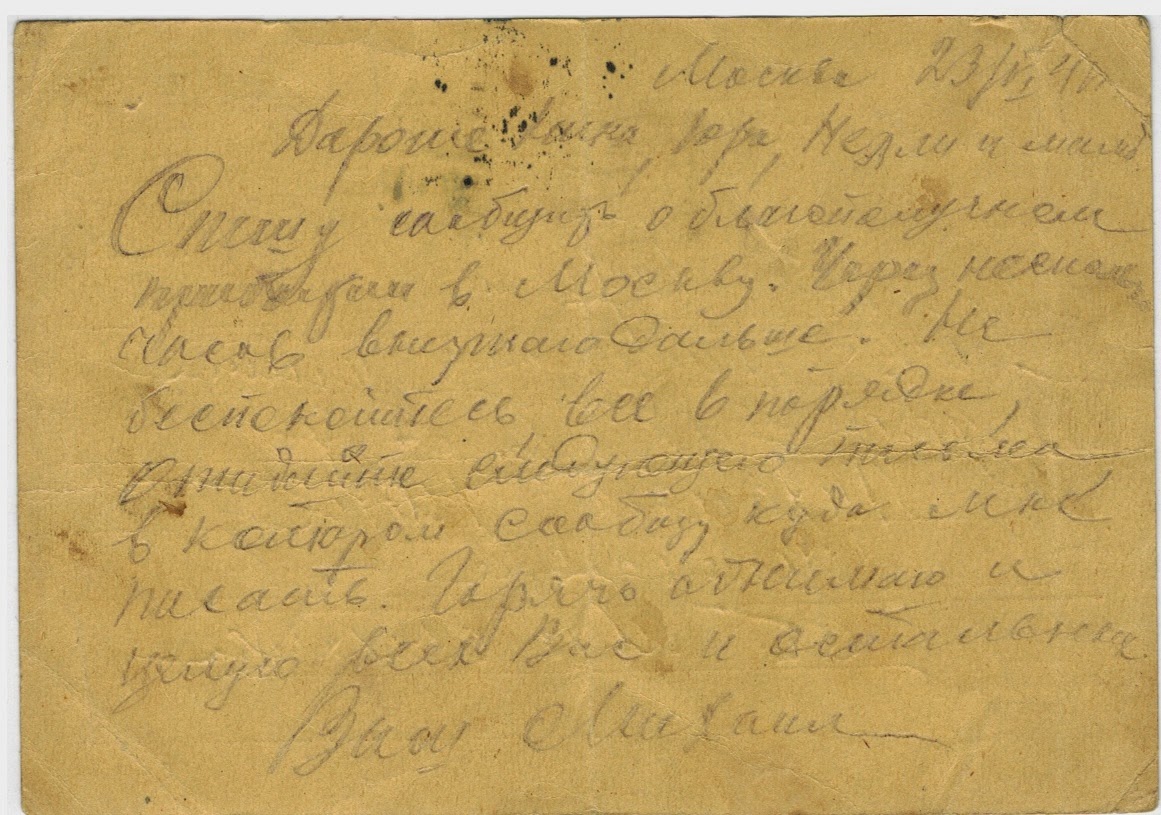 Москва 23/VI 41
Дарогие Анна, Юра, Нелли и мама
Спешу саобщить о благополучном
прибытии в Москву. Через несколько
часов выезжаю дальше. Не
беспокойтесь все в порядке,
ожидайте следующего письма
в котором саобщу куда мне
писать. Горячо обнимаю и
целую всех Вас и остальных
Ваш Михаил